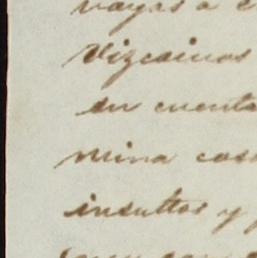 vayas a
Vizcainos
su cuenta
mina cas
insultos y